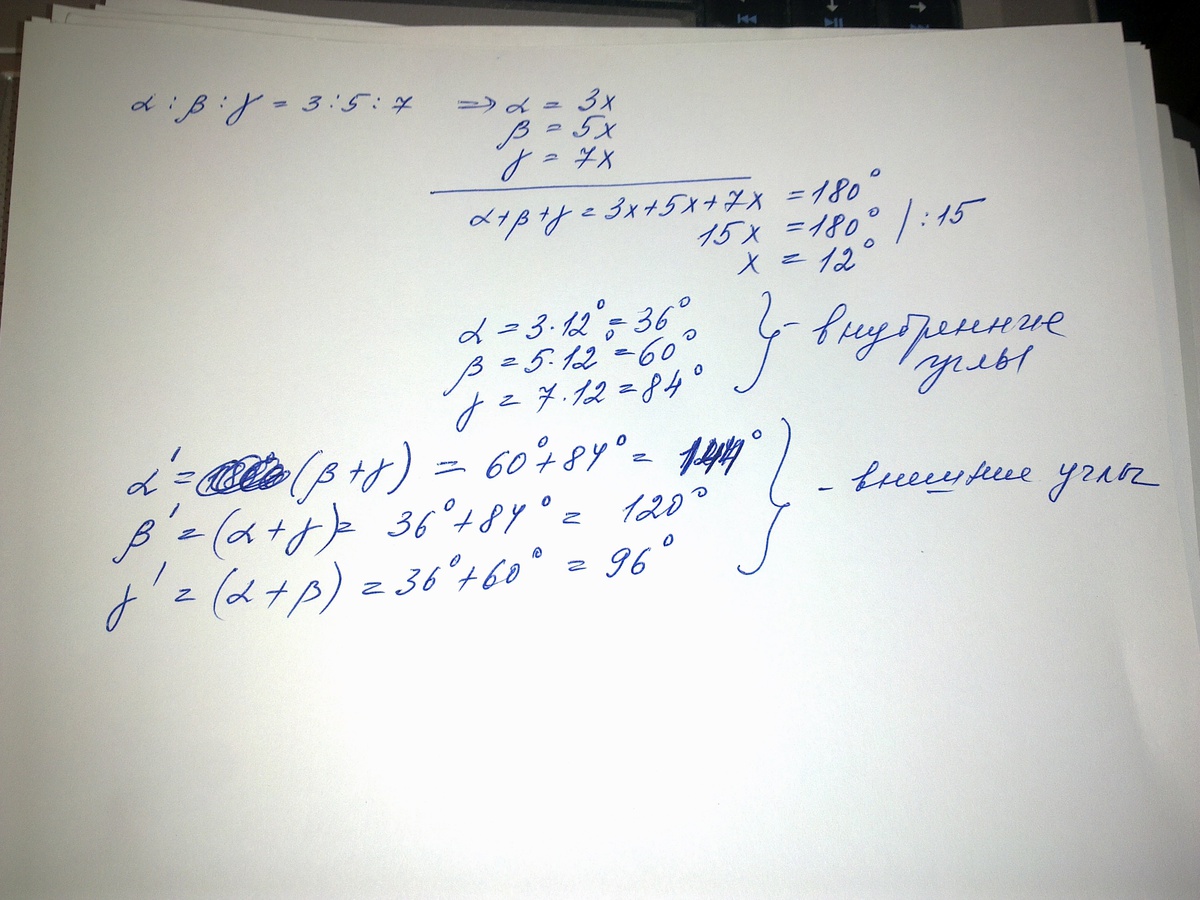 α : β : γ = 3 : 5 : 7 => α = 3x
β = 5x
γ = 7x
α+β+γ = 3x+5x+7x = 180°
15x = 180° | :15
x = 12°
α = 3·12° = 36°
β = 5·12° = 60°
γ = 7·12 = 84°
} - внутренние
углы
α' = (β+γ) = 60°+84° = 144°
β' = (α+γ) = 36°+84° = 120°
γ' = (α+β) = 36°+60° = 96°
} - внешние углы